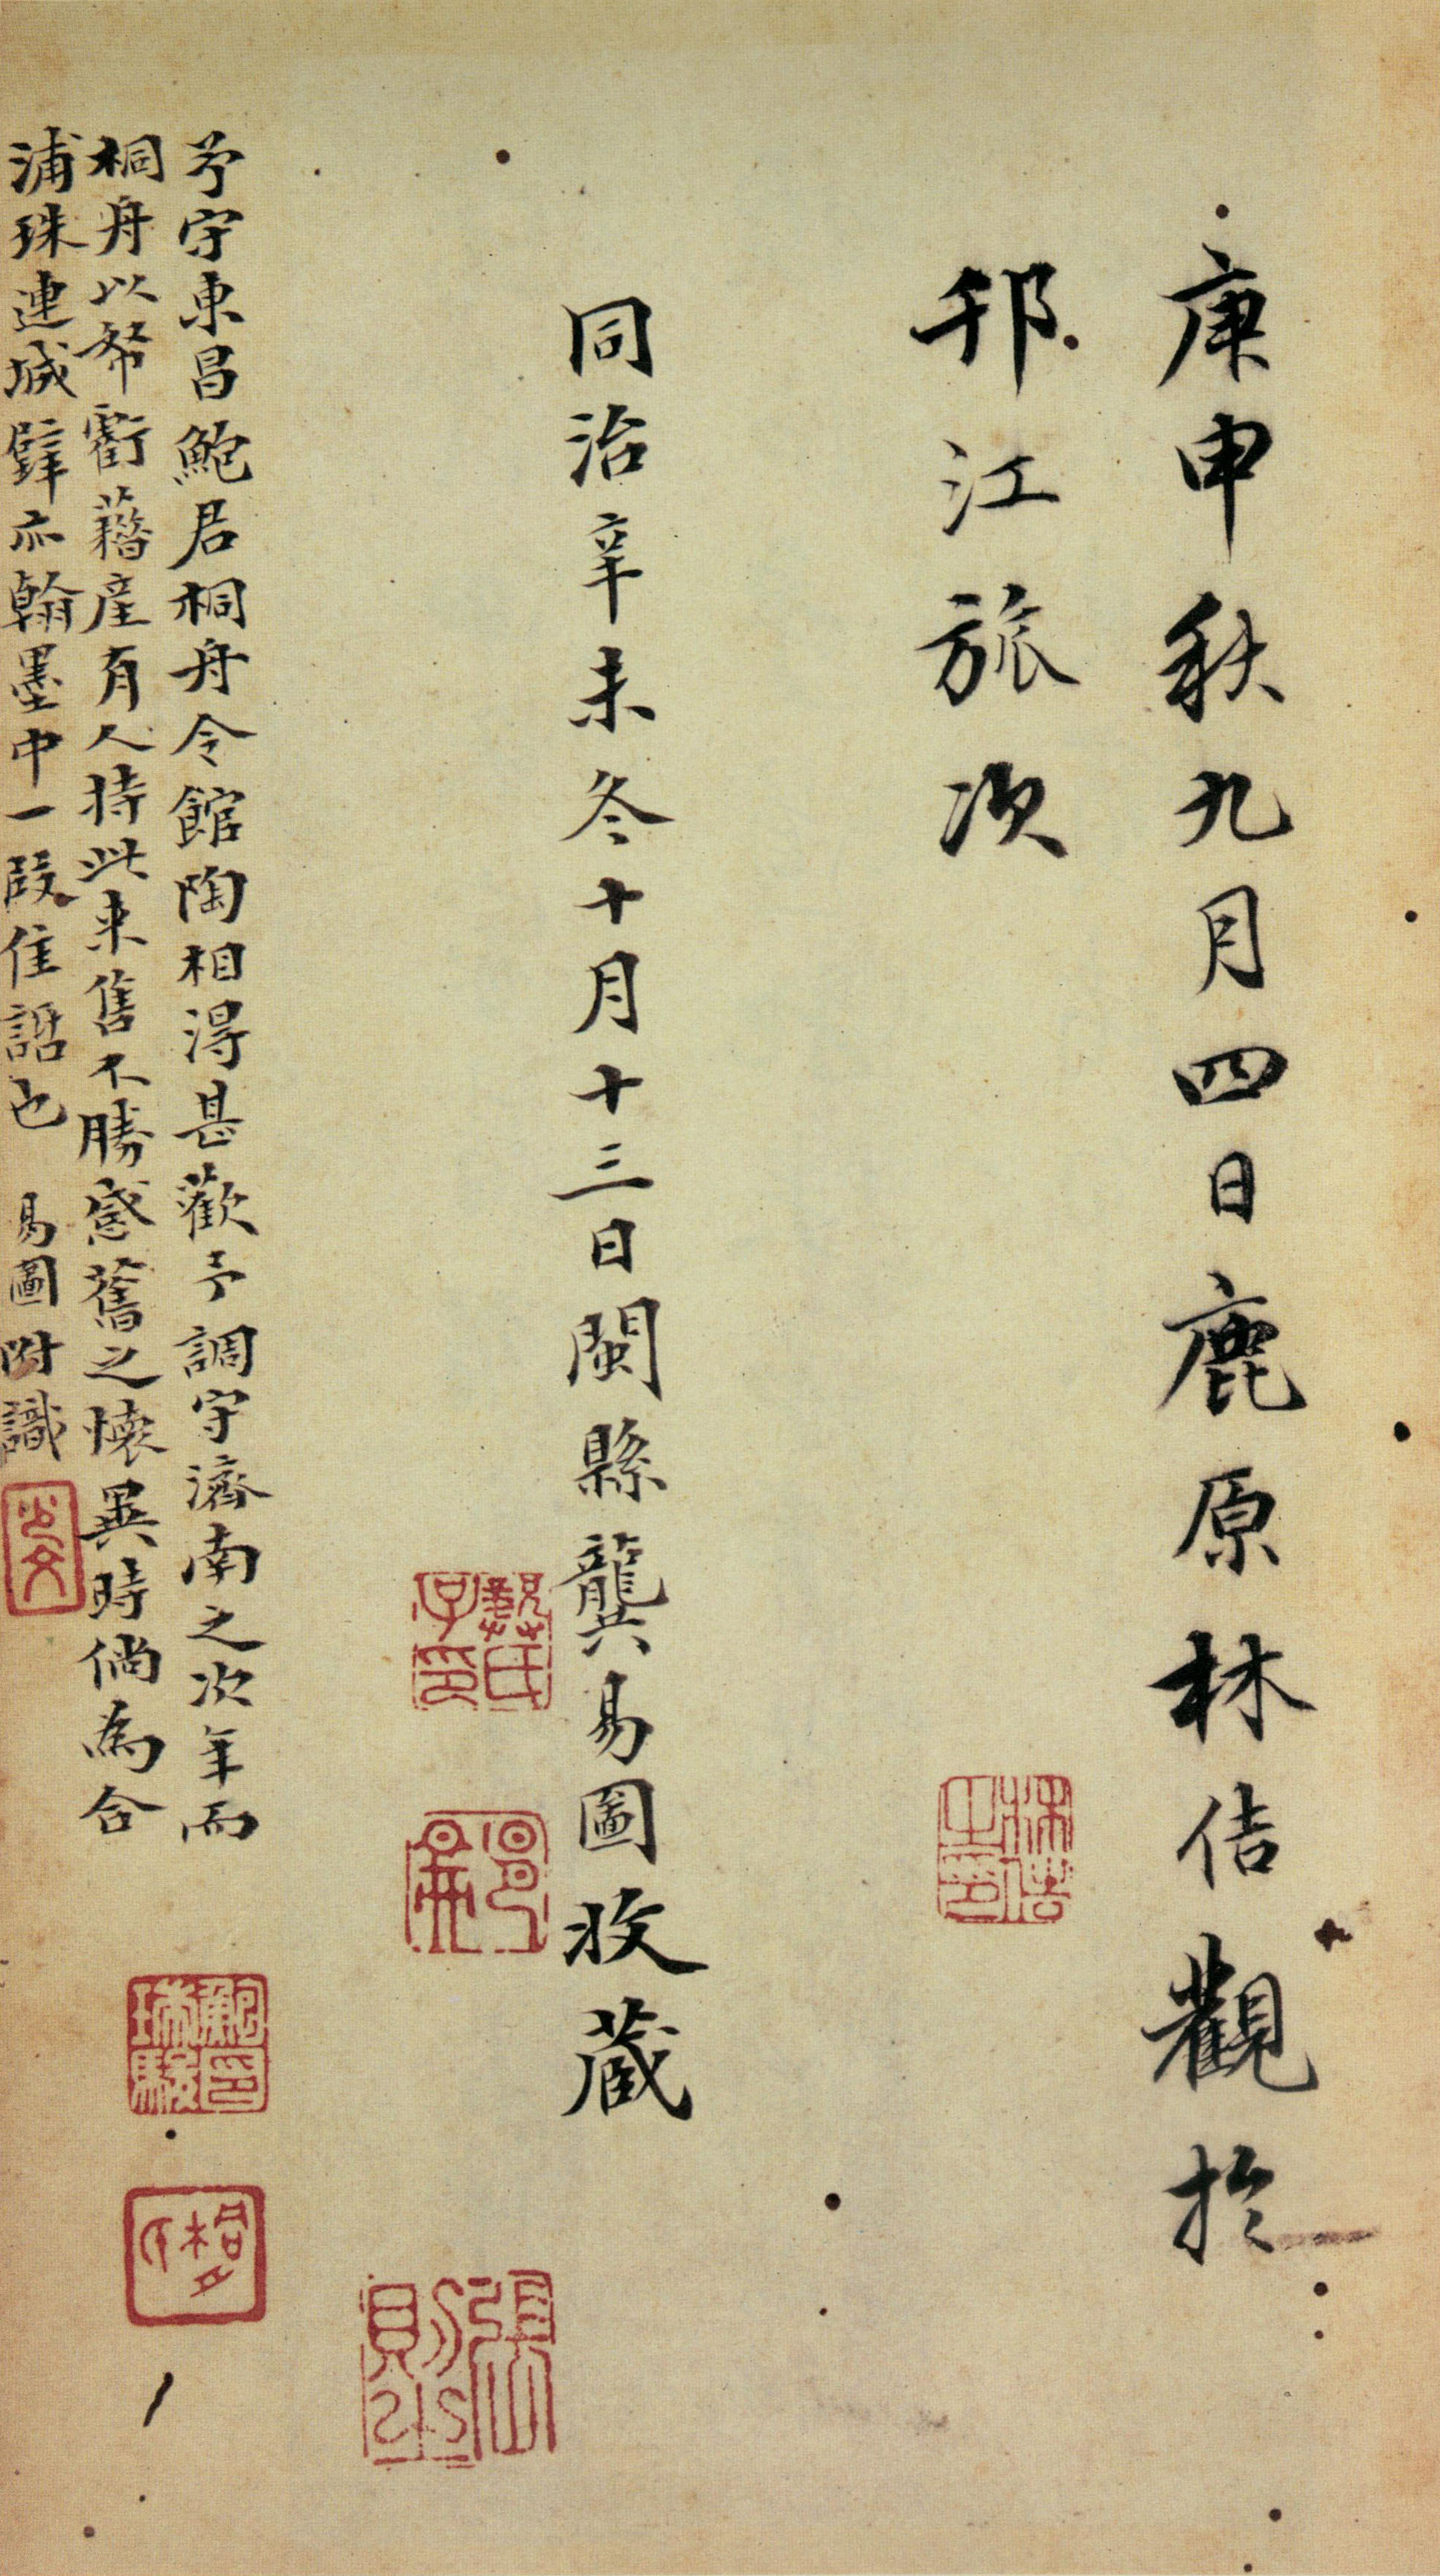 庚申秋九月四日鹿原林佶觀於
邗江旅次
林佶之印
同治辛未冬十月十三日閩縣龔易圖收藏
予守東昌鮑君桐舟令館陶相得甚歡予調守濟南之次年而
桐舟以帑虧藉產有人持此來售不勝感舊之懷異時倘為合
浦珠連城璧亦翰墨中一段佳話也 易圖附識
鮑印瑞駿